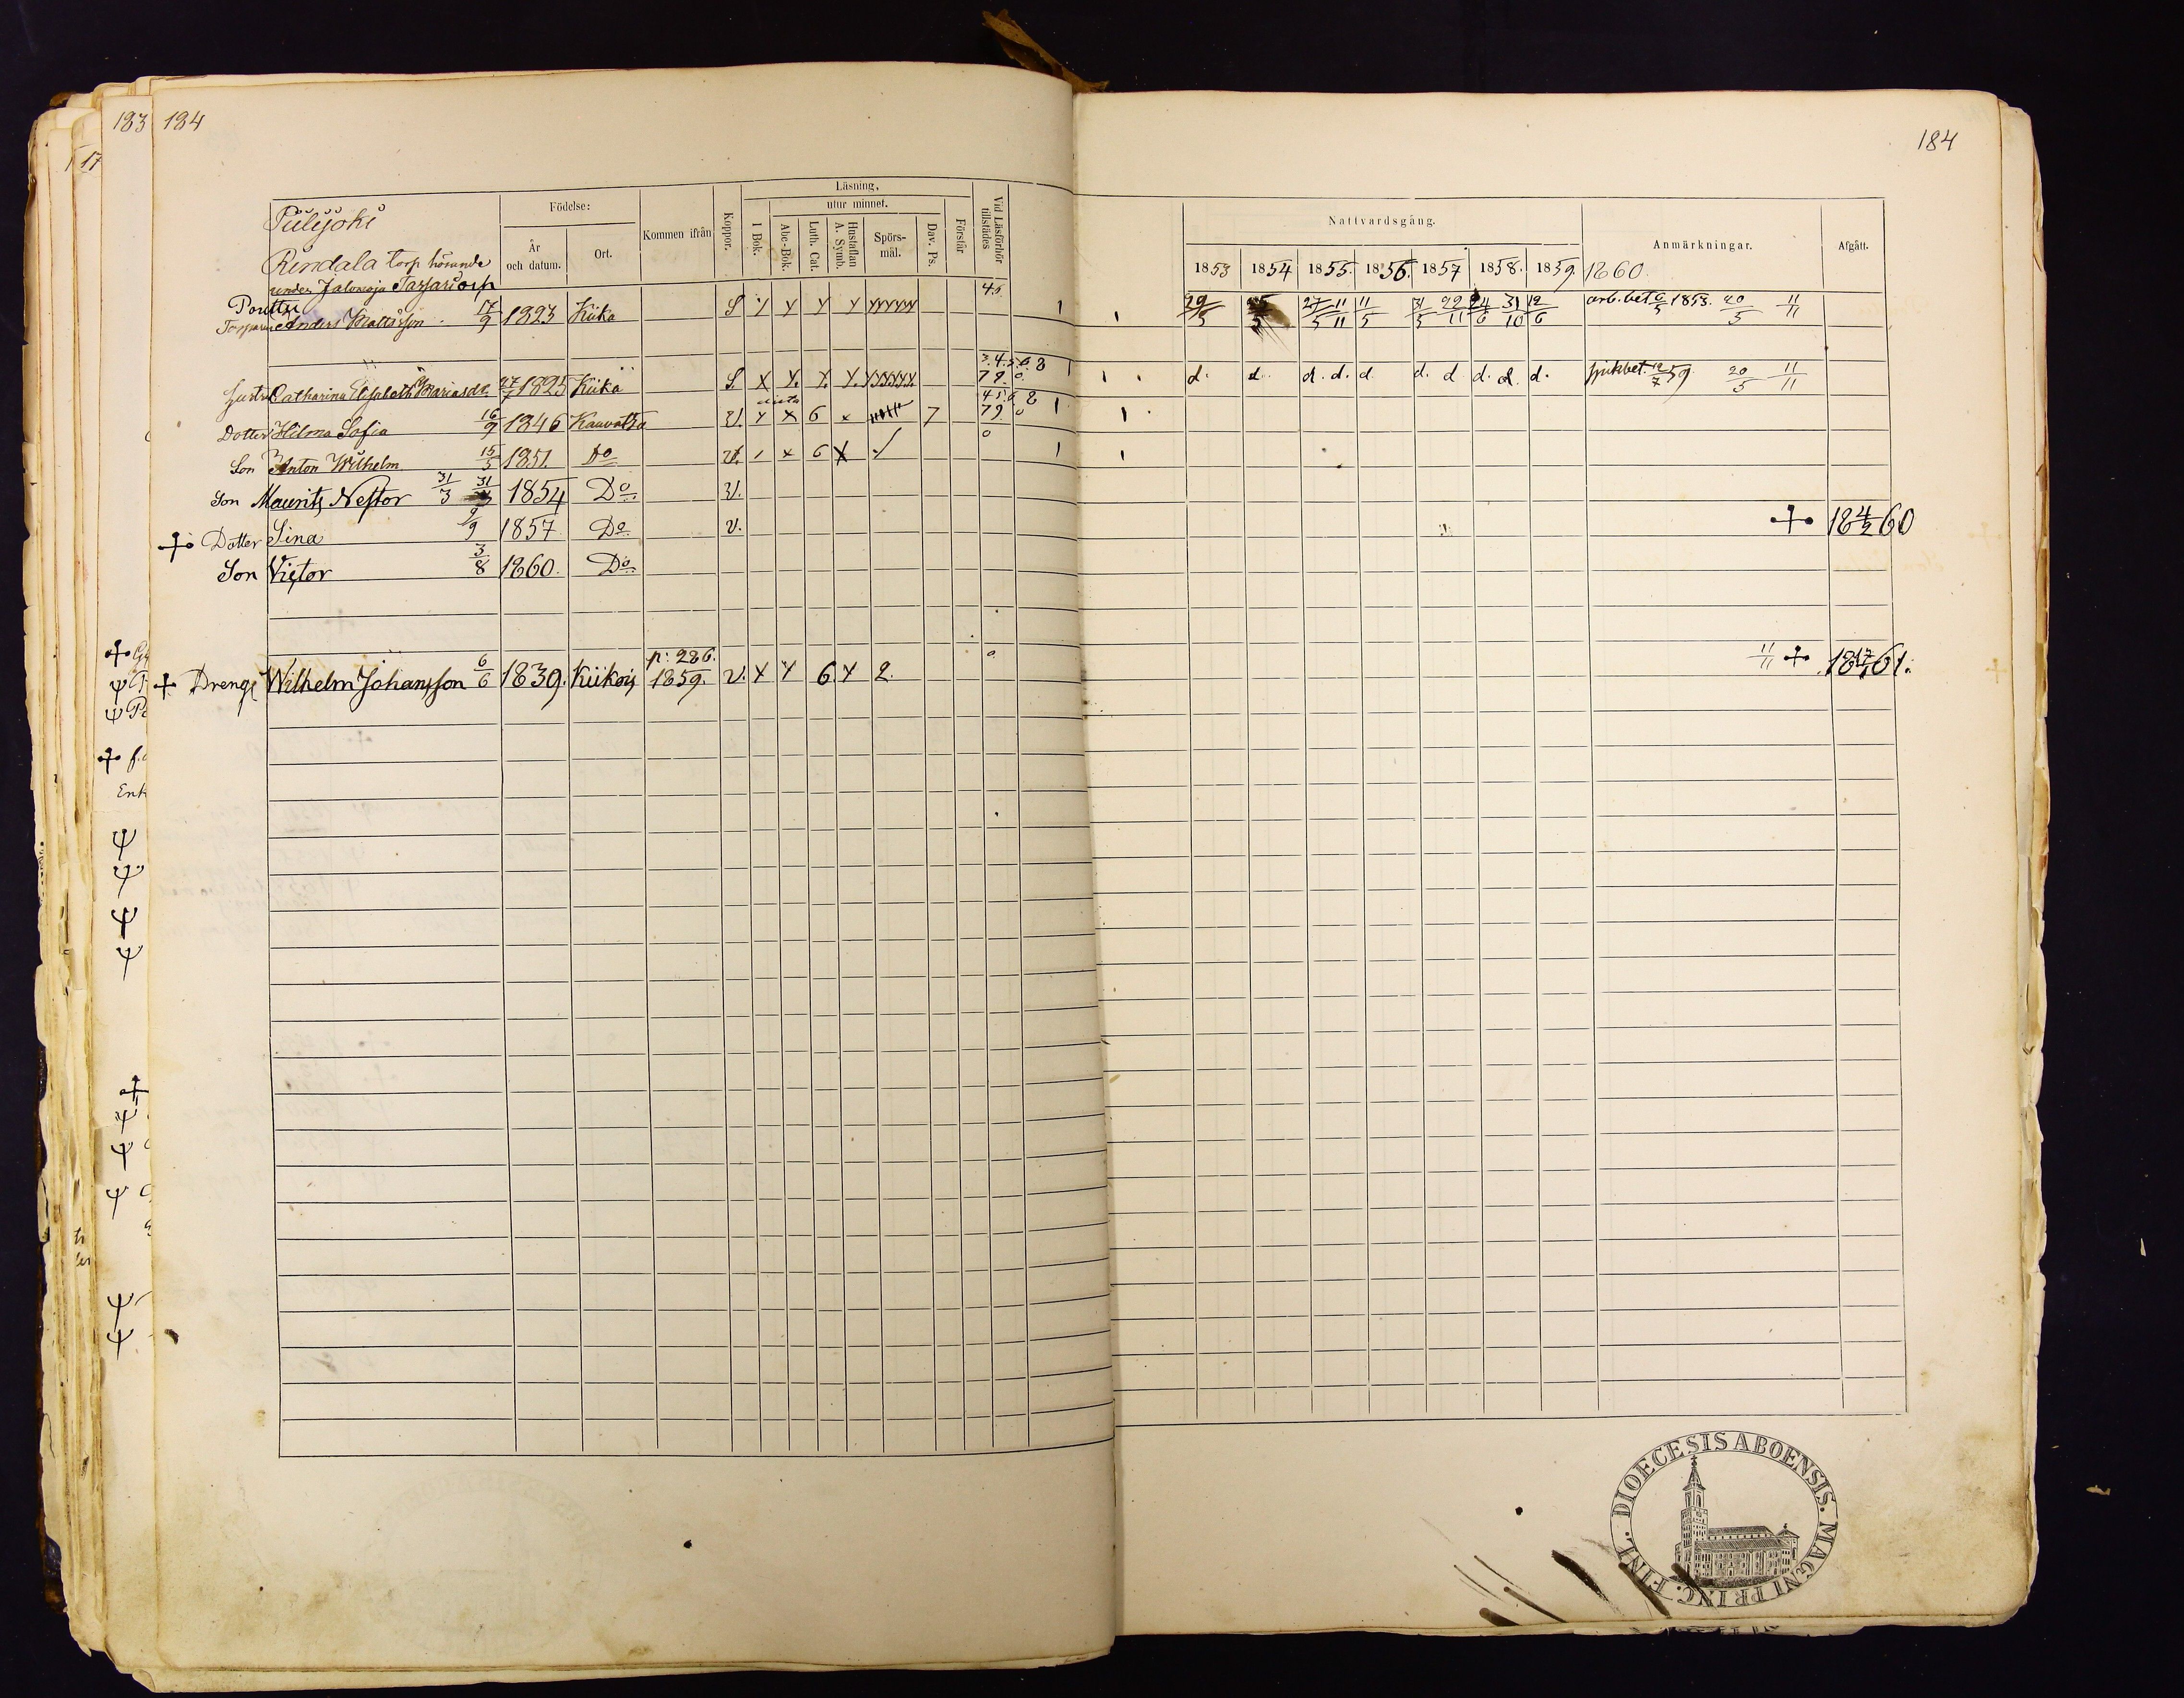 183 184
184
17
Piilijoki
Rindala torp hörande
under Jalonoja
Födelse:
År
och datum.
Ort.
Kommen ifrån
Koppor.
Läsning,
utur minnet.
I Bok.
Abc-Bok.
Luth. Cat.
Hustaflan
A. Symb.
Spörs-
mål.
Dav. Ps.
Förstår
Vid Läsförhör
tillstädes
Nattvardsgång.
1853 1854 1855. 1856. 1857 1858. 1859. 1860.
Anmärkningar.
Afgått.
Pouttu
Anders Mattsson 17/9 1823 Kiika S y y y y 4.5 29/5 27/5 11/11 11/5 31/5 22/11 24/6 31/10 12/6 arb. bet. 6/5 1853. 20/5 11/11
Hustru Catharina Elisabeth Mariasdr. 27/7 1825 Kiika S x y. y. y. 3.4.5.6.8 7.9. 0. d. d. d. d. d. d. d. d. d. d. 12/7 59. 20/5 11/11
Dotter Hilma Sofia 16/9 1846 Kauvatsa V. y x 6 x 7 4.5.6.8 79. 0
Son Anton Wilhelm 15/5 1851. Do v. / x 6 x 0
Son Maurits Nestor 31/3 31 1854 Do V.
+ Dotter Sina 9/9 1857 Do v. + 18 4/2 60
Son Victor 3/8 1860. Do
p: 226.
+ Dreng Wilhelm Johansson 6/6 1839. Kiikois 1859. v. x y 6 x 2. 0 11/11 + 1861.
+ f.
Enk
DIOECESIS ABOENSIS. MAGNI PRINC. FINL.